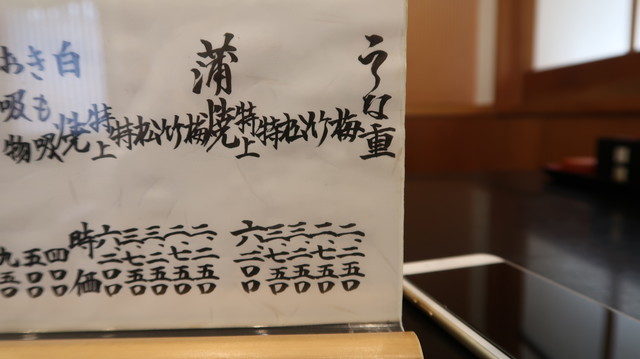 うな重
梅 二、二五〇
竹 二、七五〇
松 三、二五〇
特 三、七五〇
特上 六、二〇〇
蒲焼
梅 二、二五〇
竹 二、七五〇
松 三、二五〇
特 三、七五〇
特上 六、二〇〇
白焼 時価
きも吸 四〇〇
お吸物 五〇〇
九五〇